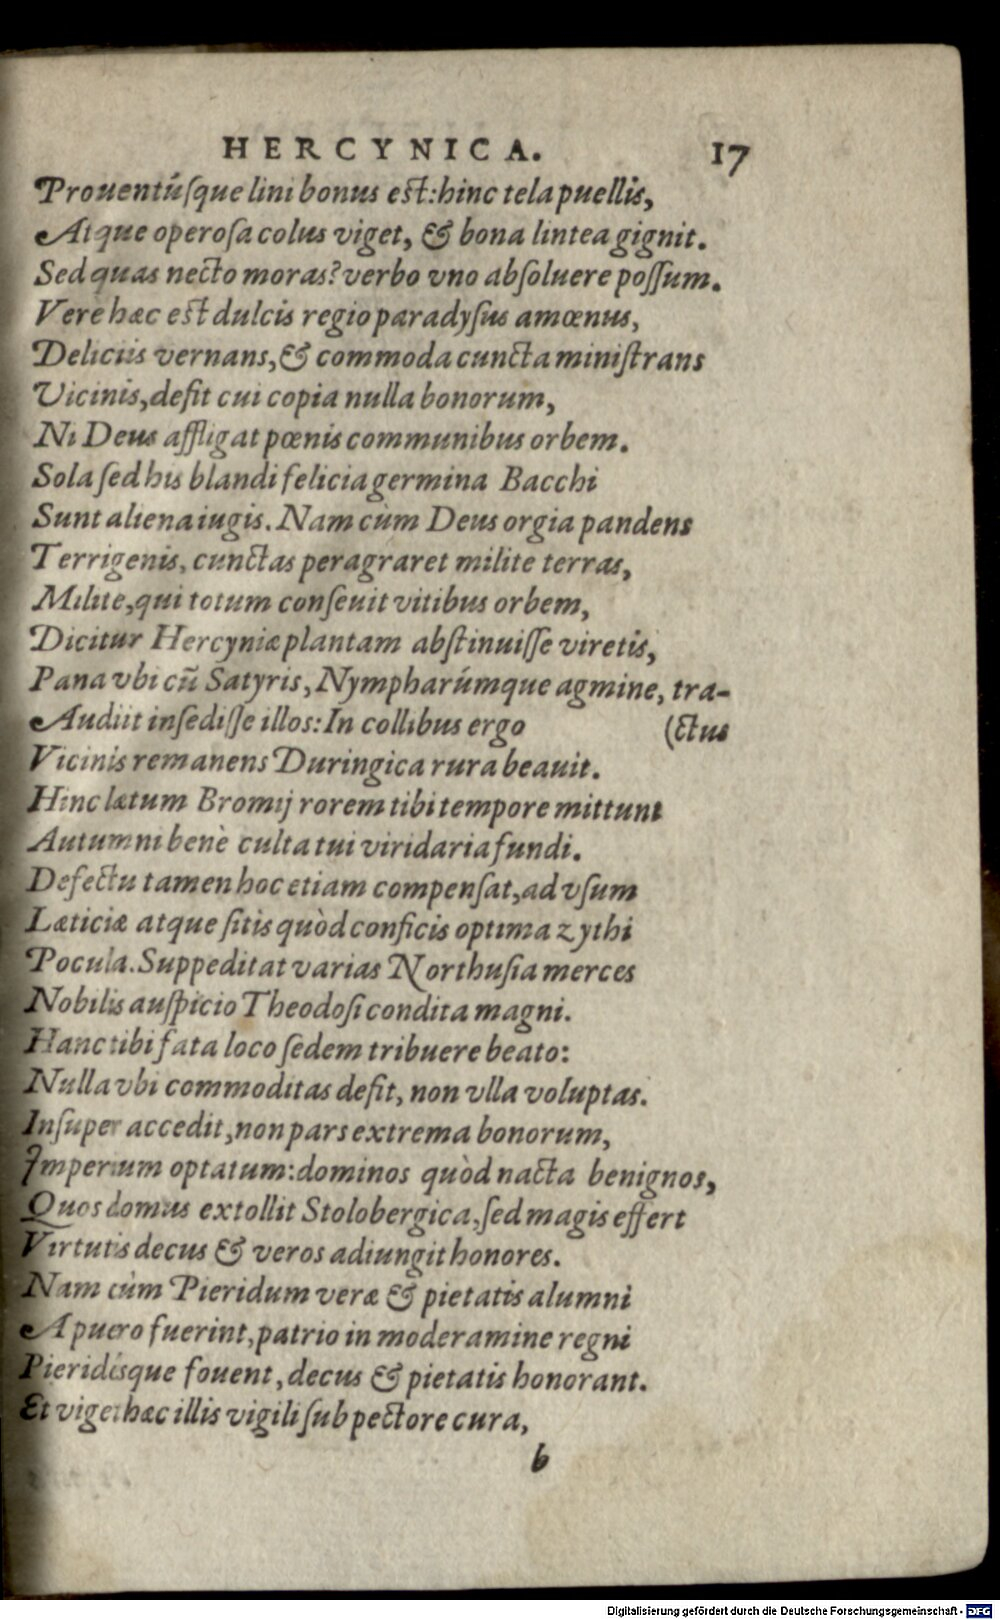 HERCYNICA. 17
Prouentúſque lini bonus est: hinc tela puellis,
Atque operoſa colus viget, & bona lintea gignit.
Sed quas necto moras? verbo vno abſoluere poſſum.
Vere hæc est dulcis regio paradyſus amœnus,
Deliciis vernans, & commoda cuncta miniſtrans
Vicinis, deſit cui copia nulla bonorum,
Ni Deus affligat pœnis communibus orbem.
Sola ſed his blandi felicia germina Bacchi
Sunt aliena iugis. Nam cùm Deus orgia pandens
Terrigenis, cunctas peragraret milite terras,
Milite, qui totum conſeuit vitibus orbem,
Dicitur Hercyniæ plantam abſtinuiſſe viretis,
Pana vbi cũ Satyris, Nympharúmque agmine, tra-
Audiit inſediſſe illos: In collibus ergo (ctus
Vicinis remanens Duringica rura beauit.
Hinc lætum Bromij rorem tibi tempore mittunt
Autumni benè culta tui viridaria fundi.
Defectu tamen hoc etiam compenſat, ad vſum
Læticiæ atque ſitis quòd conficis optima zythi
Pocula. Suppeditat varias Northuſia merces
Nobilis auſpicio Theodoſi condita magni.
Hanc tibi fata loco ſedem tribuere beato:
Nulla vbi commoditas deſit, non vlla voluptas.
Inſuper accedit, non pars extrema bonorum,
Imperium optatum: dominos quòd nacta benignos,
Quos domus extollit Stolobergica, ſed magis effert
Virtutis decus & veros adiungit honores.
Nam cùm Pieridum veræ & pietatis alumni
A puero fuerint, patrio in moderamine regni
Pieridésque fouent, decus & pietatis honorant.
Et viget hæc illis vigili ſub pectore cura,
b
Digitalisierung gefördert durch die Deutsche Forschungsgemeinschaft - DFG